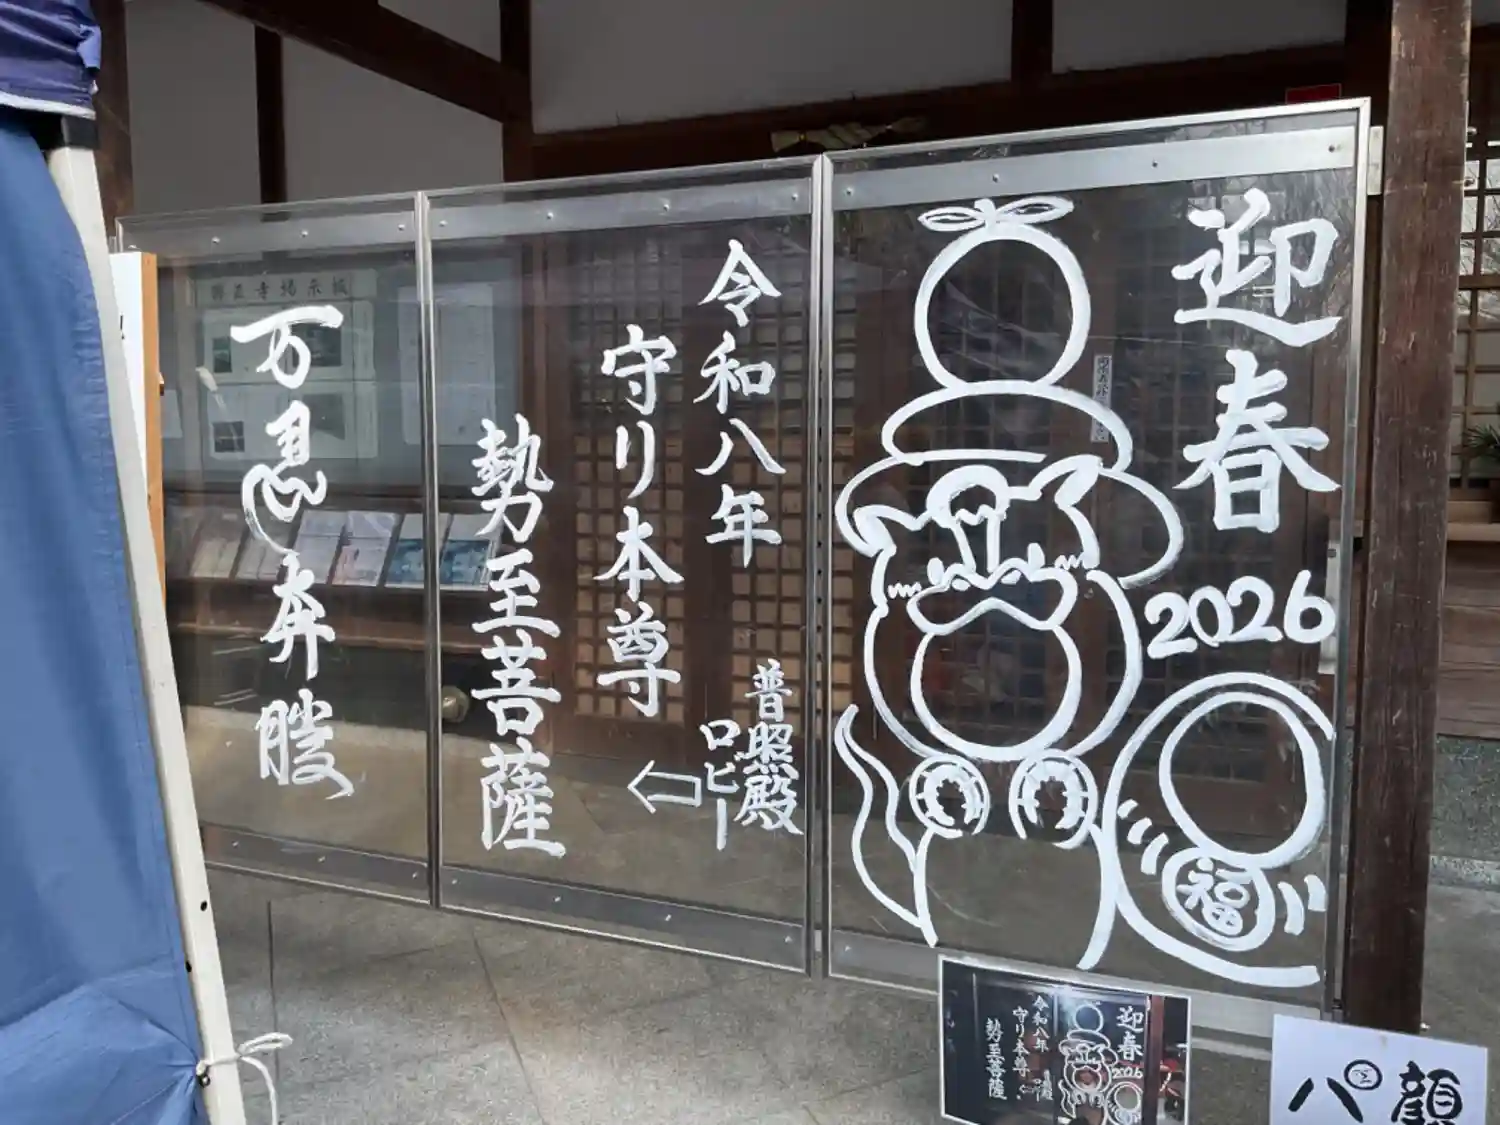 迎春
2026
福
令和八年
守り本尊
勢至菩薩
普照殿
ロビー
万恩奔騰
掲示板
迎春
2026
令和八年
守り本尊
勢至菩薩
パ
顔